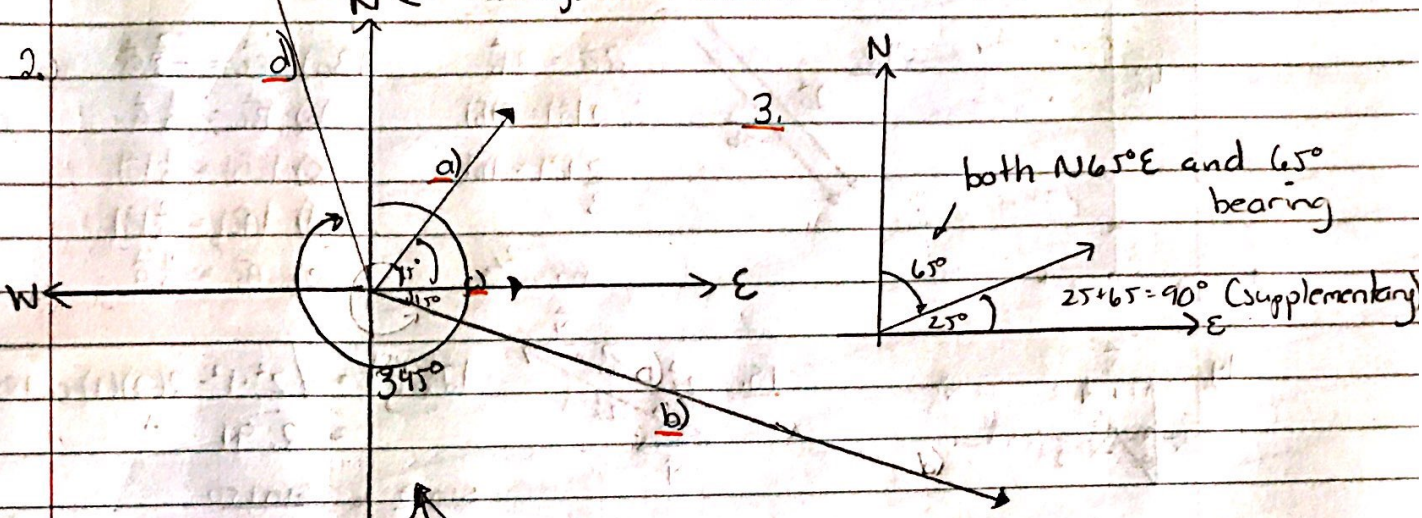 N
2.
d)
a)
W
E
c)
15°
345°
b)
3.
N
both N65°E and 65°
bearing
65°
25+65=90° (supplementary)
25°
E